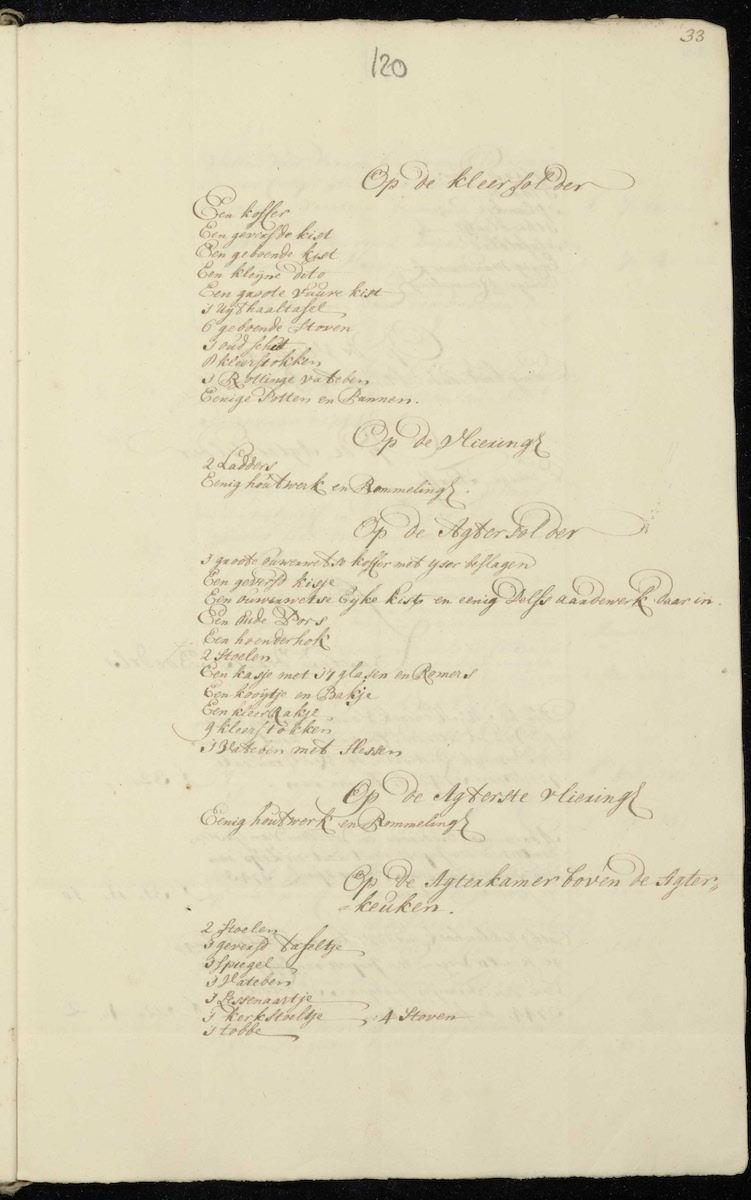 33
120
Op de kleersolder
Een koffer
Een geverfde kist
Een geboende kist
Een kleijne dito
Een groote vuure kist
1 Uijthaaltafel
6 geboende Stoven
1 oud schut
8 kleerstokken
1 Rottinge vateben
Eenige Potten en Pannen.
Op de Vliering
2 Ladders
Eenig houtwerk en Rommeling.
Op de Agtersolder
1 groote ouwerwetse koffer met ijser beslagen
Een geverfd kisje
Een ouwerwetse Eijke kist en eenig Delfs aardewerk daar in.
Een oude Pors
Een hoenderhok
2 Stoelen
Een kasje met 17 glasen en Romers
Een kooijtje en Bakje
Een kleer Rakje
9 kleerstokken
1 Vateben met Flessen
Op de Agterste vliering
Eenig houtwerk en Rommeling
Op de Agterkamer boven de Agter-
keuken.
2 Stoelen
1 geverfd tafeltje
1 spiegel
1 Vateben
1 Lessenaartje
1 kerkstoeltje, 4 Stoven
1 tobbe